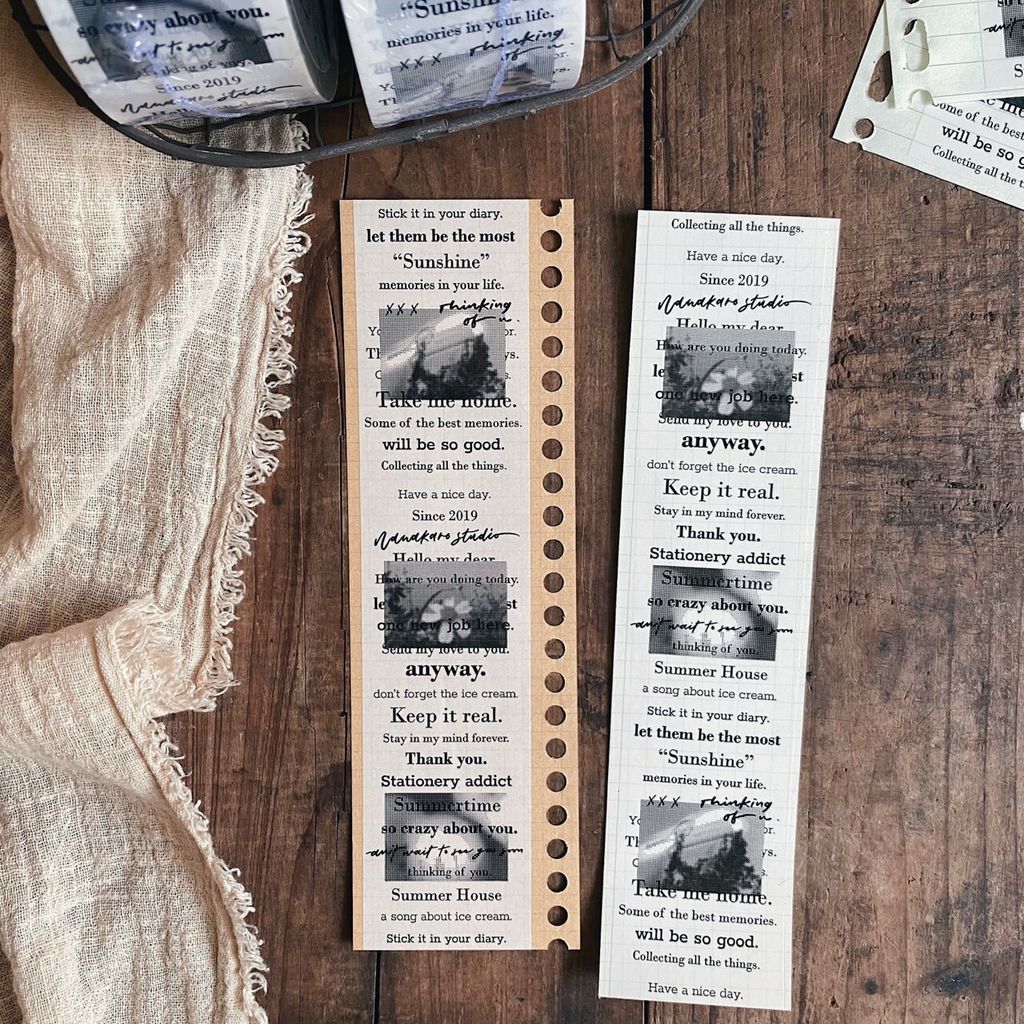 so crazy about you.
Since 2019
Nanakaro studio
"Sunshine"
memories in your life.
XXX thinking
of u.
so
Some of the best
will be so
Collecting all the
Stick it in your diary.
let them be the most
“Sunshine”
memories in your life.
XXX thinking
of u.
Take me home.
Some of the best memories.
will be so good.
Collecting all the things.
Have a nice day.
Since 2019
Nanakaro studio
Hello my dear
How are you doing today.
one new job here.
Send my love to you.
anyway.
don't forget the ice cream.
Keep it real.
Stay in my mind forever.
Thank you.
Stationery addict
Summertime
so crazy about you.
can't wait to see you soon
thinking of you.
Summer House
a song about ice cream.
Stick it in your diary.
Collecting all the things.
Have a nice day.
Since 2019
Nanakaro studio
Hello my dear
How are you doing today.
one new job here.
Send my love to you.
anyway.
don't forget the ice cream.
Keep it real.
Stay in my mind forever.
Thank you.
Stationery addict
Summertime
so crazy about you.
can't wait to see you soon
thinking of you.
Summer House
a song about ice cream.
Stick it in your diary.
let them be the most
“Sunshine”
memories in your life.
XXX thinking
of u.
Take me home.
Some of the best memories.
will be so good.
Collecting all the things.
Have a nice day.